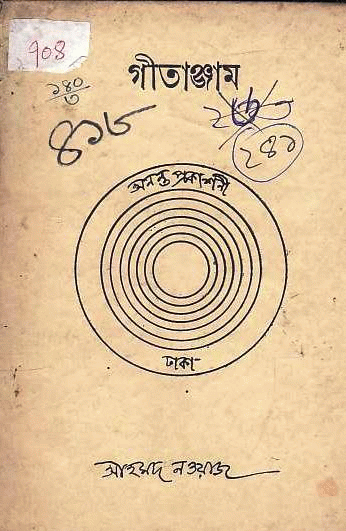 908
১৪০
৩
গীতাঞ্জাম
৪১৮
২৪১
অনন্ত প্রকাশনী
ঢাকা
আহমদ নওয়াজ